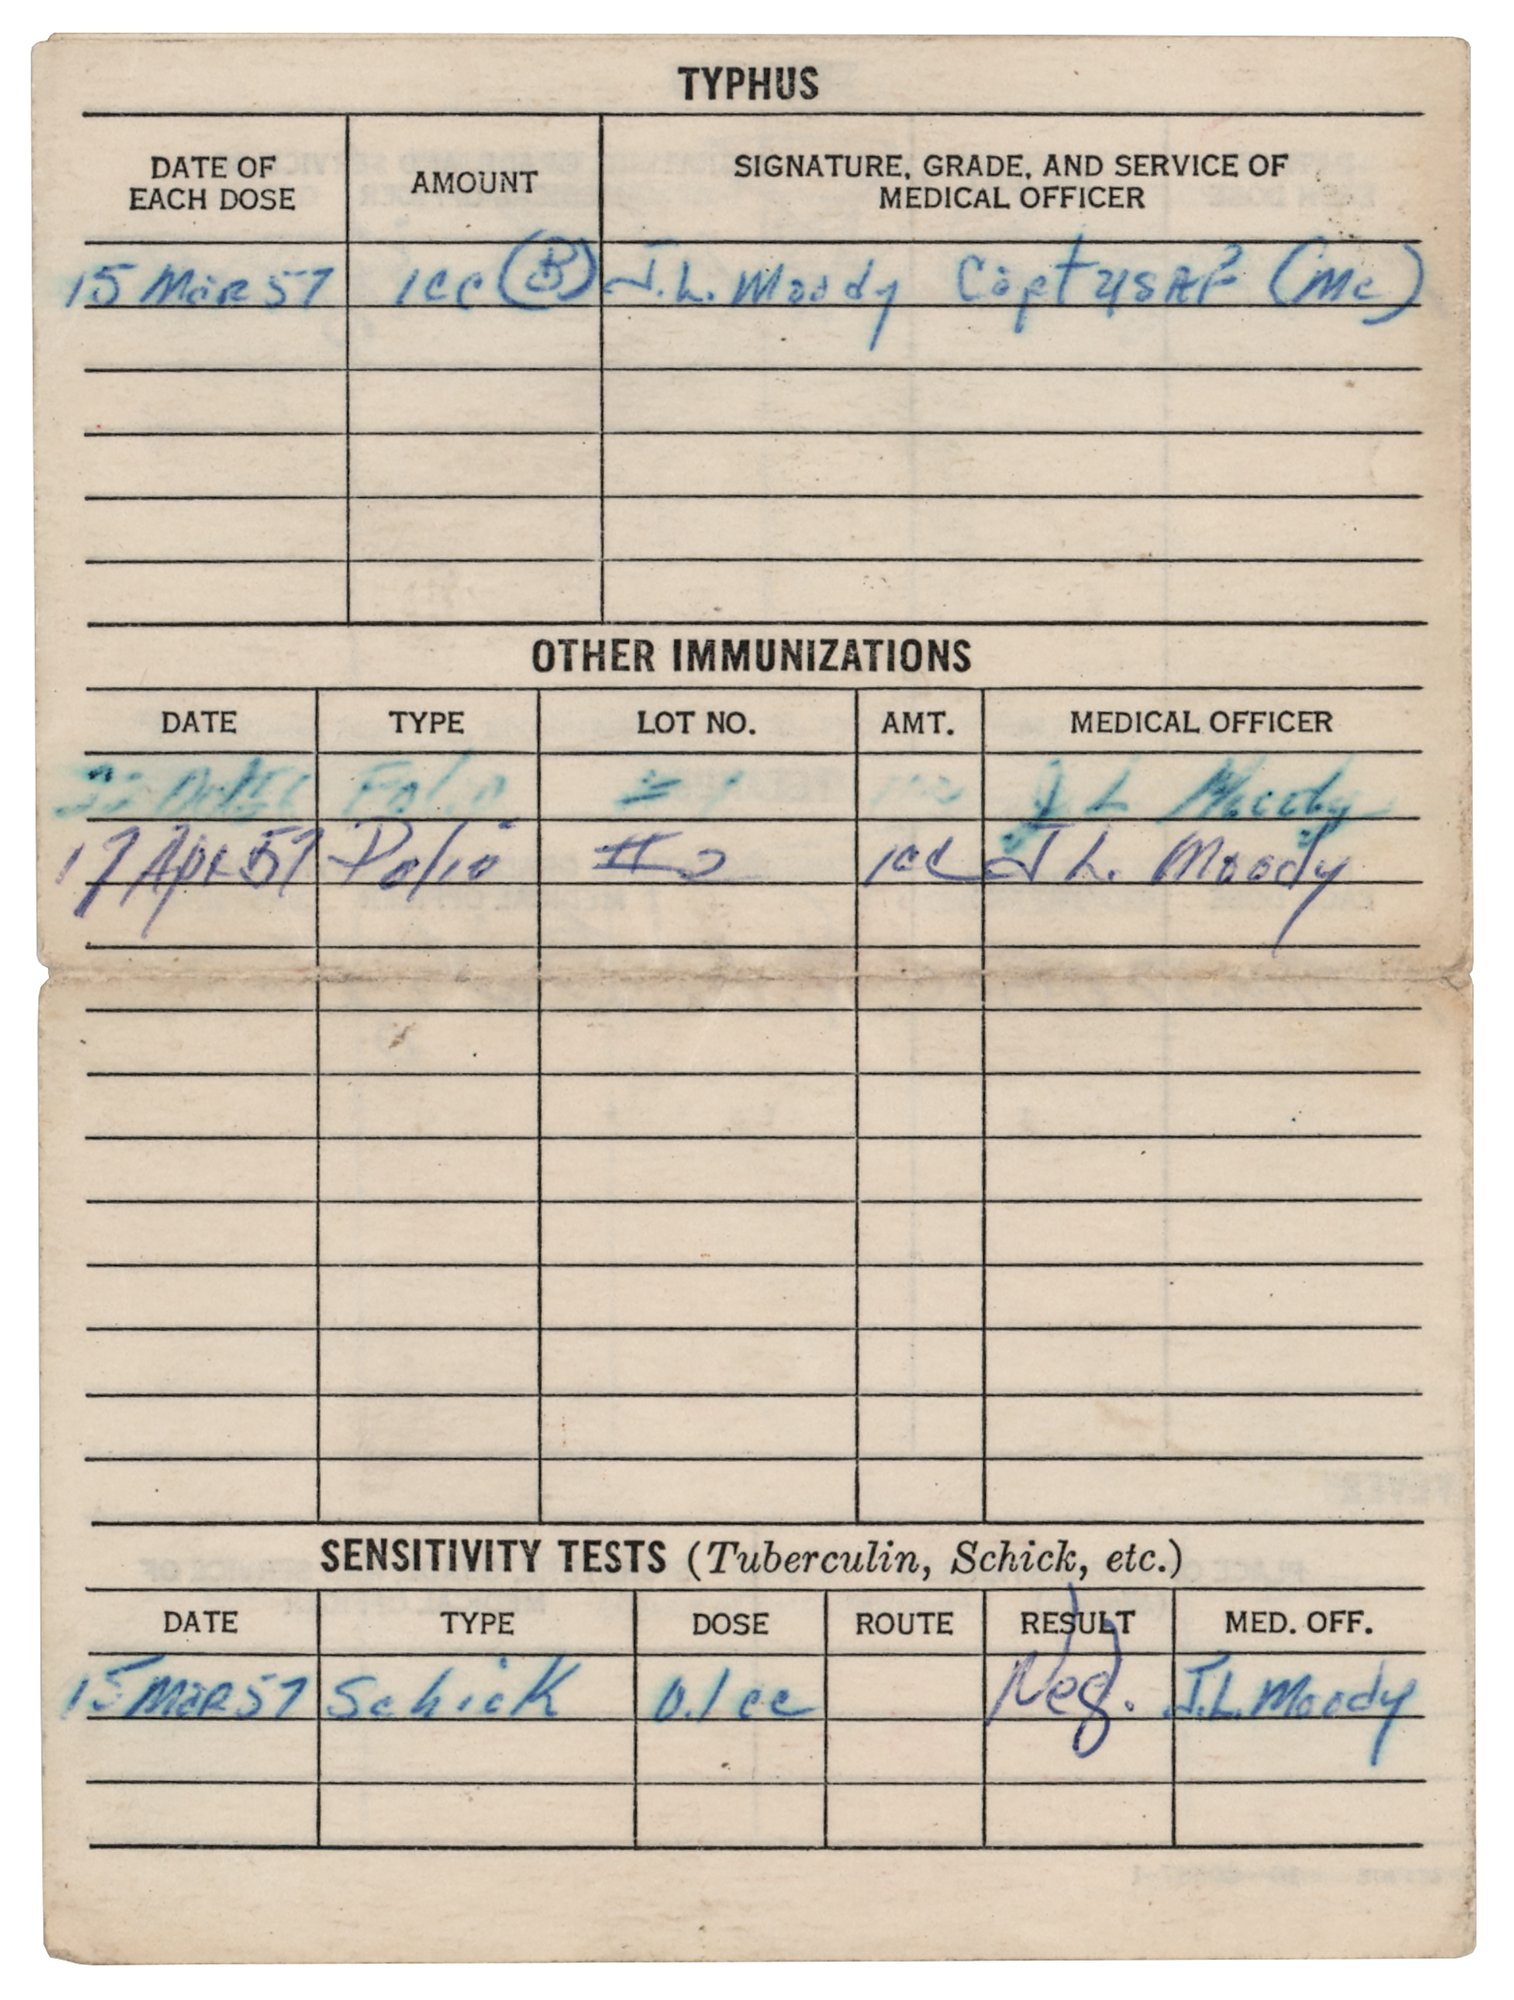 TYPHUS
DATE OF EACH DOSE AMOUNT SIGNATURE, GRADE, AND SERVICE OF MEDICAL OFFICER
15 Mar 57 1cc (B) J.L. Moody Capt USAF (Mc)
OTHER IMMUNIZATIONS
DATE TYPE LOT NO. AMT. MEDICAL OFFICER
Polio # 1 J L Moody
17 Apr 57 Polio # 2 1cc J L. Moody
SENSITIVITY TESTS (Tuberculin, Schick, etc.)
DATE TYPE DOSE ROUTE RESULT MED. OFF.
15 Mar 57 Schick 0.1 cc Neg. J.L. Moody